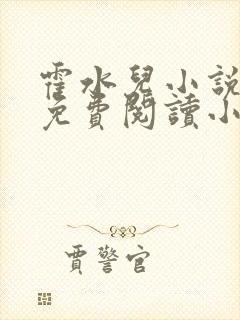 霍水兒小説
免費閲讀小
賈警官